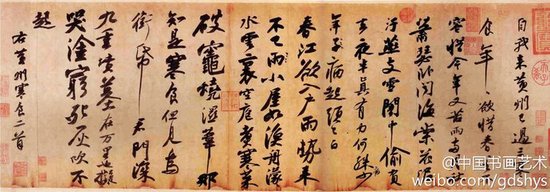 自我來黃州已過三寒
食年年欲惜春春去不
容惜今年又苦雨兩月秋
蕭瑟臥聞海棠花泥
汙燕支雪闇中偷負
去夜半真有力何殊少
年子病起頭已白
春江欲入戶雨勢來
不已雨小屋如漁舟濛濛
水雲裏空庖煮寒菜
破竈燒濕葦那
知是寒食但見烏
銜帋君門深
九重墳墓在万里也擬
哭塗窮死灰吹不
起
右黃州寒食二首
@中国书画艺术
weibo.com/gdshys